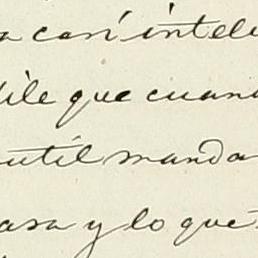 a casi intele
dile que cuand
util manda
asa y lo que